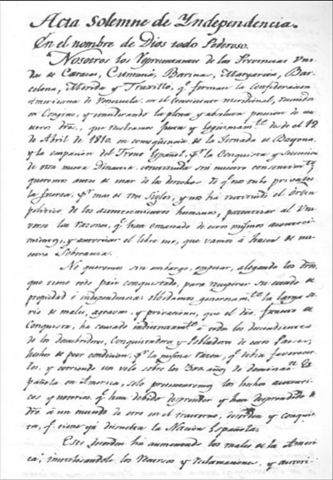 Acta Solemne de Yndependencia.
En el nombre de Dios todo Poderoso.
Nosotros los Representantes de las Provincias Uni-
das de Caracas, Cumaná, Barinas, Margarita, Bar-
celona, Mérida y Truxillo, q.e forman la Confederación
Americana de Venezuela en el Continente meridional, reunidos
en Congreso, y considerando la plena y absoluta posesion de
nuestros dros., que recobramos justa y legitimam.te desde el 19
de Abril de 1810, en conseqüencia de la Jornada de Bayona,
y la ocupación del Trono Español, p.r la Conquista y sucesion
de otra nueva Dinastia, constituida sin nuestro consentim.to:
queremos antes de usar de los derechos de q.e nos tuvo privados
la fuerza p.r mas de tres Siglos, y nos ha restituido el Orden
politico de los acontecimientos humanos, patentizar al Uni-
verso las razones, q.e han emanado de estos mismos aconteci-
mientos, y autorizan el libre uso, que vamos á hacer de nu-
estra Soberania.
No queremos sin embargo, empezar, alegando los dros.
que tiene todo pais conquistado, para recuperar su estado de
propiedad é independencia: olvidamos generosam.te la larga se-
rie de males, agravios, y privaciones, que el dro. funesto de
Conquista, ha causado indistintam.te á todos los descendientes
de los descubridores, Conquistadores y Pobladores de estos Paises,
hechos de peor condicion, p.r la misma razon, q.e debia favorecer-
los, y corriendo un velo sobre los 300 años de dominac.on Es-
pañola en America, solo presentaremos los hechos autenti-
cos y notorios, q.e han debido desprender y han desprendido de
dro. á un mundo de otro en el trastorno, desorden y conquis-
ta, q.e tiene ya disuelta la Nación Española.
Este desorden ha aumentado los males de la Améri-
ca; inutilizandole los recursos y reclamaciones, y autori-